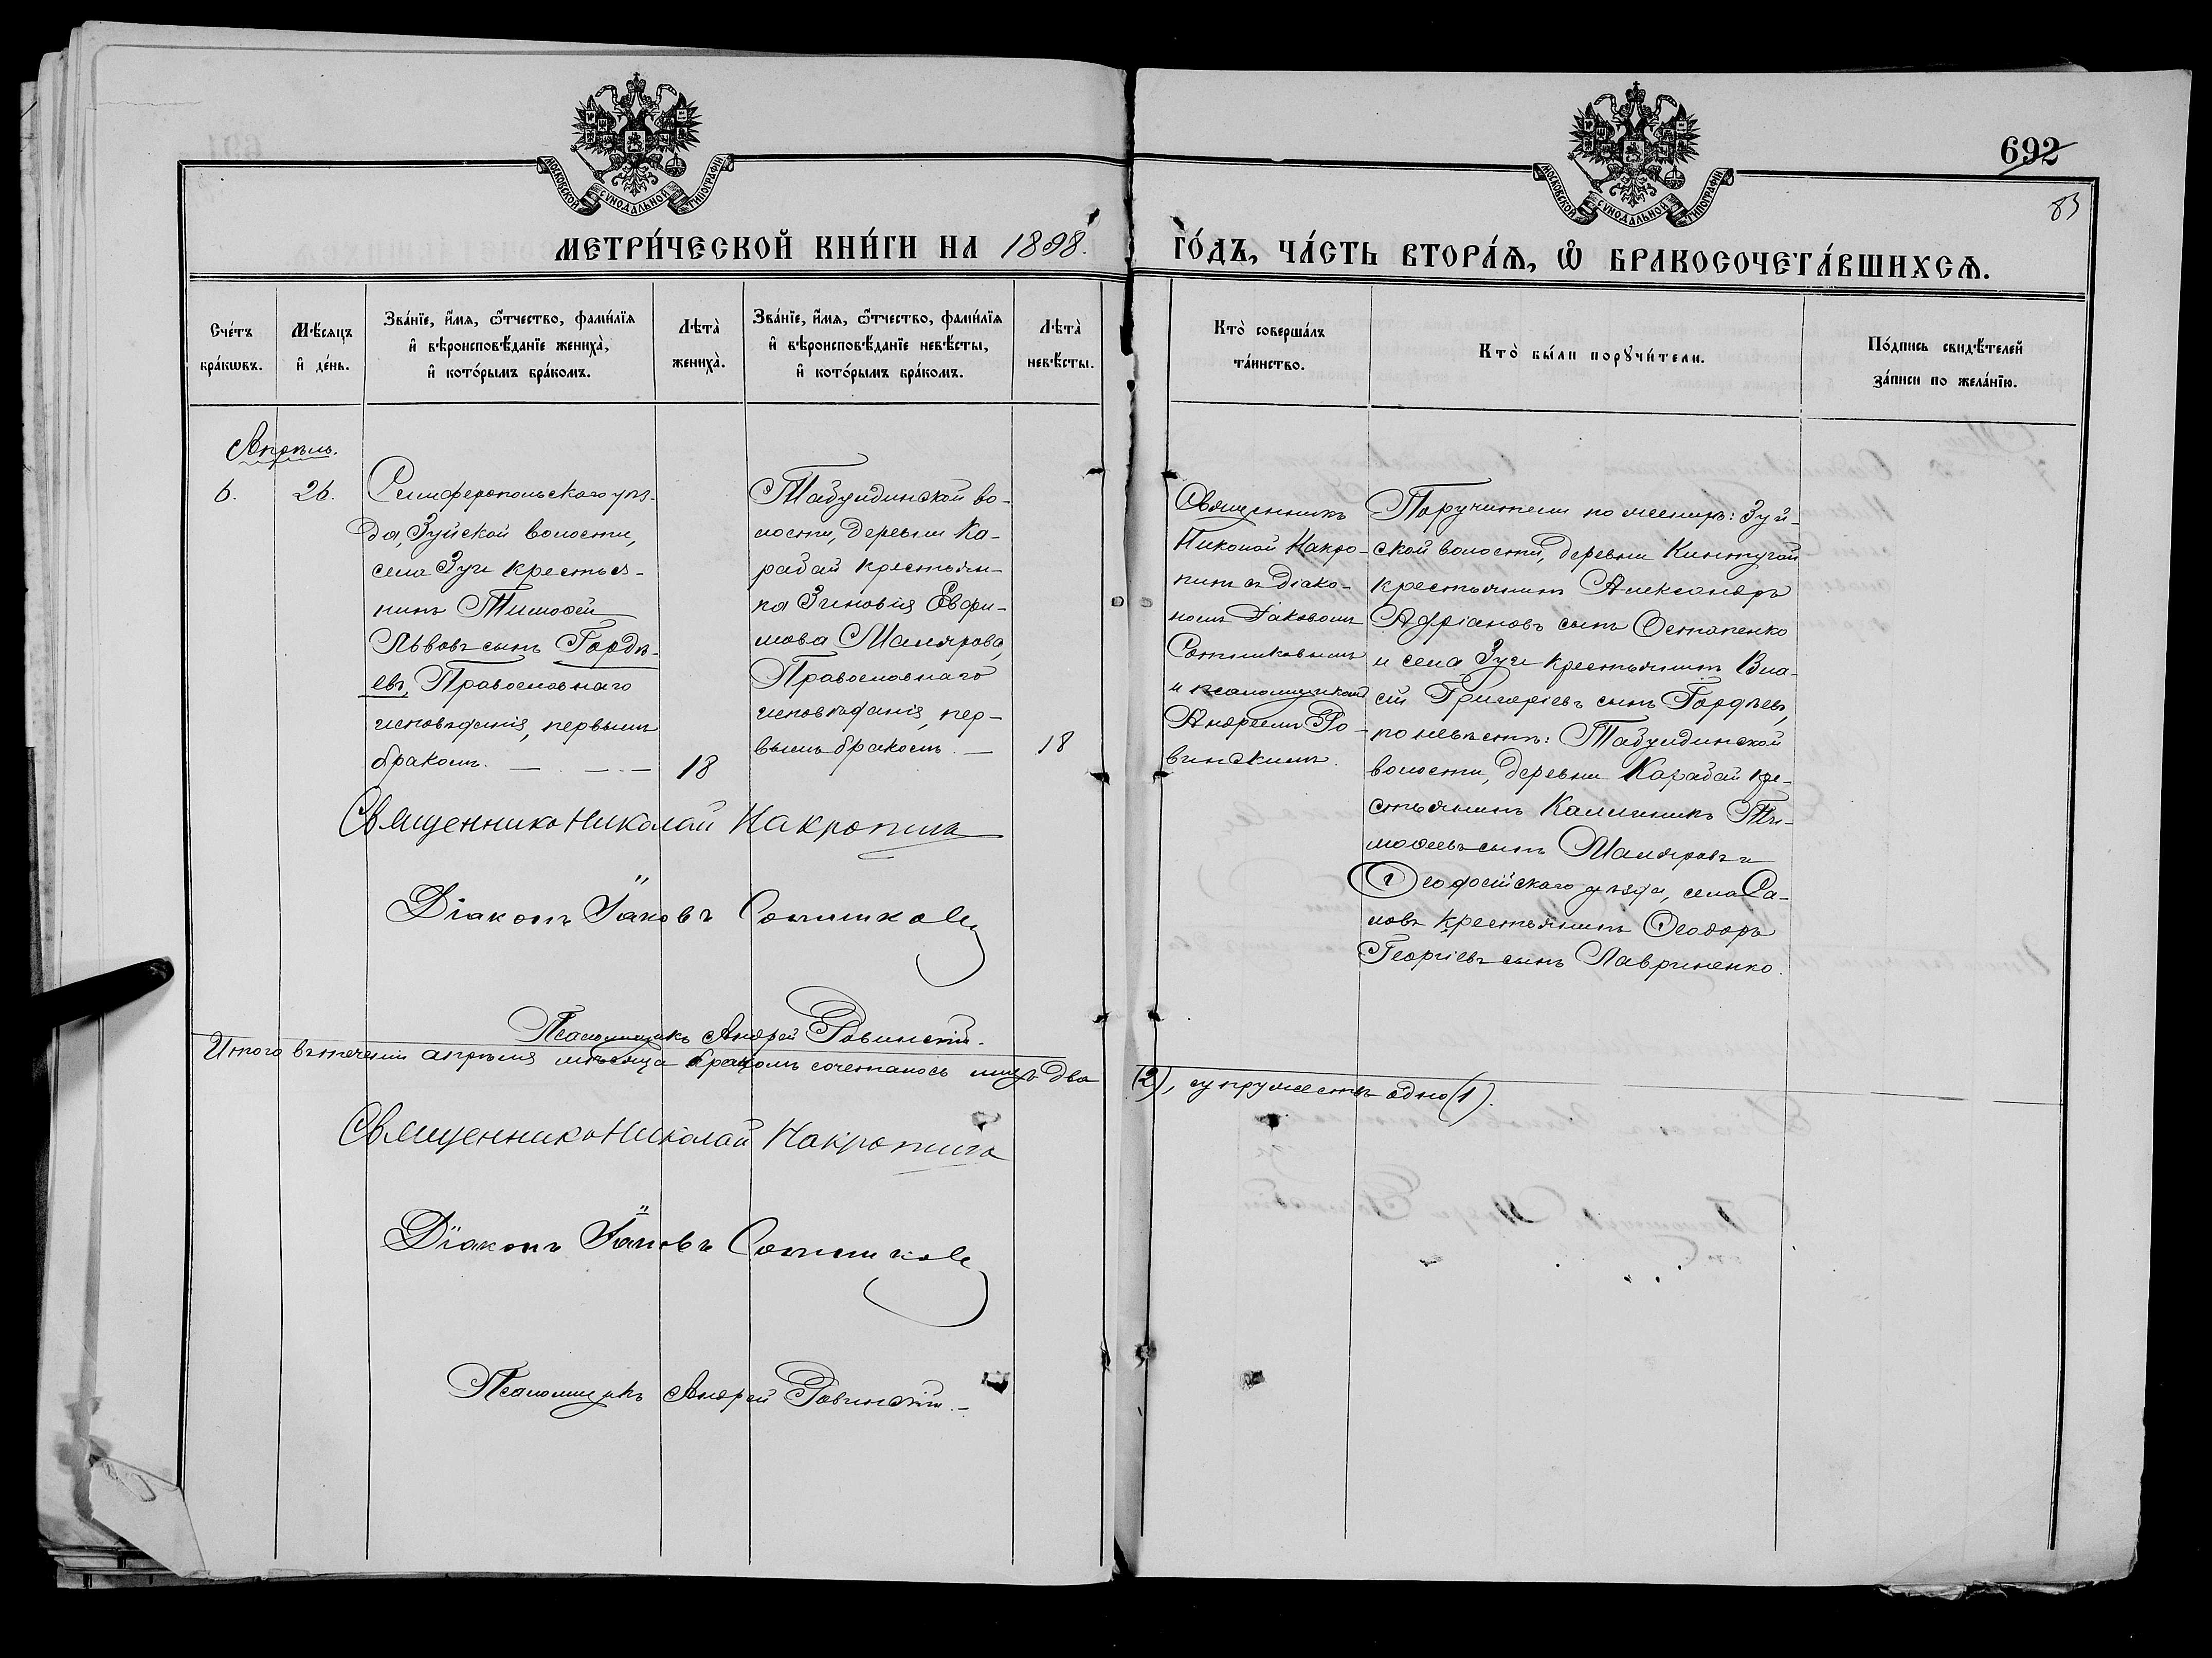 692
83
МОСКОВСКОЙ СѴНОДАЛЬНОЙ ТИПОГРАФІИ
МОСКОВСКОЙ СѴНОДАЛЬНОЙ ТИПОГРАФІИ
МЕТРИ́ЧЕСКОЙ КНИ́ГИ НА 1898.
ГО́ДЪ, ЧА́СТЬ ВТОРА́Ѧ, Ѽ БРАКОСОЧЕТА́ВШИХСѦ.
Сче́тъ
бра́кѡвъ.
Мѣ́сяцъ
и҆ де́нь.
Зва́нїе, и҆́мѧ, ѻ҆́тчество, фами́лїѧ
и҆ вѣроисповѣ́данїе жениха̀,
и҆ кото́рымъ бра́комъ.
Лѣта̀
жениха̀.
Зва́нїе, и҆́мѧ, ѻ҆́тчество, фами́лїѧ
и҆ вѣроисповѣ́данїе невѣ́сты,
и҆ кото́рымъ бра́комъ.
Лѣта̀
невѣ́сты.
Кто̀ соверша́лъ
та́инство.
Кто̀ бы́ли порꙋчи́тели.
По́дпись свидѣ́телей
за́писи по жела́нїю.
Апрѣль.
6.
26.
Симферопольскаго уѣз-
да, Зуйской волости,
села Зуи крестья-
нинъ Тимоѳей
Львовъ сынъ Гордѣ-
евъ, Православнаго
исповѣданія, первымъ
бракомъ.
18
Табулдинской во-
лости, деревни Ка-
рабай крестьян-
ка Зиновія Евфи-
мова Малярова,
Православнаго
исповѣданія, пер-
вымъ бракомъ.
18
Священникъ
Николай Накро-
пинъ съ Діако-
номъ Іаковомъ
Сотниковымъ
и псаломщикомъ
Андреемъ Ро-
винскимъ.
Поручители по женихѣ: Зуй-
ской волости, деревни Кинтугай
крестьянинъ Александръ
Адріановъ сынъ Остапенко
и села Зуи крестьянинъ Вла-
сій Григоріевъ сынъ Гордѣевъ,
по невѣстѣ: Табулдинской
волости, деревни Карабай кре-
стьянинъ Каллиникъ Ти-
моѳеевъ сынъ Маляровъ и
Ѳеодосійскаго уѣзда, села Са-
ловъ крестьянинъ Ѳеодоръ
Георгіевъ сынъ Лавриненко.
Священникъ Николай Накропинъ
Діаконъ Іаковъ Сотниковъ
Псаломщикъ Андрей Ровинскій.
Итого въ теченіи апрѣля мѣсяца бракомъ сочеталось лицъ два (2), супружествъ одно (1).
Священникъ Николай Накропинъ
Діаконъ Іаковъ Сотниковъ
Псаломщикъ Андрей Ровинскій.